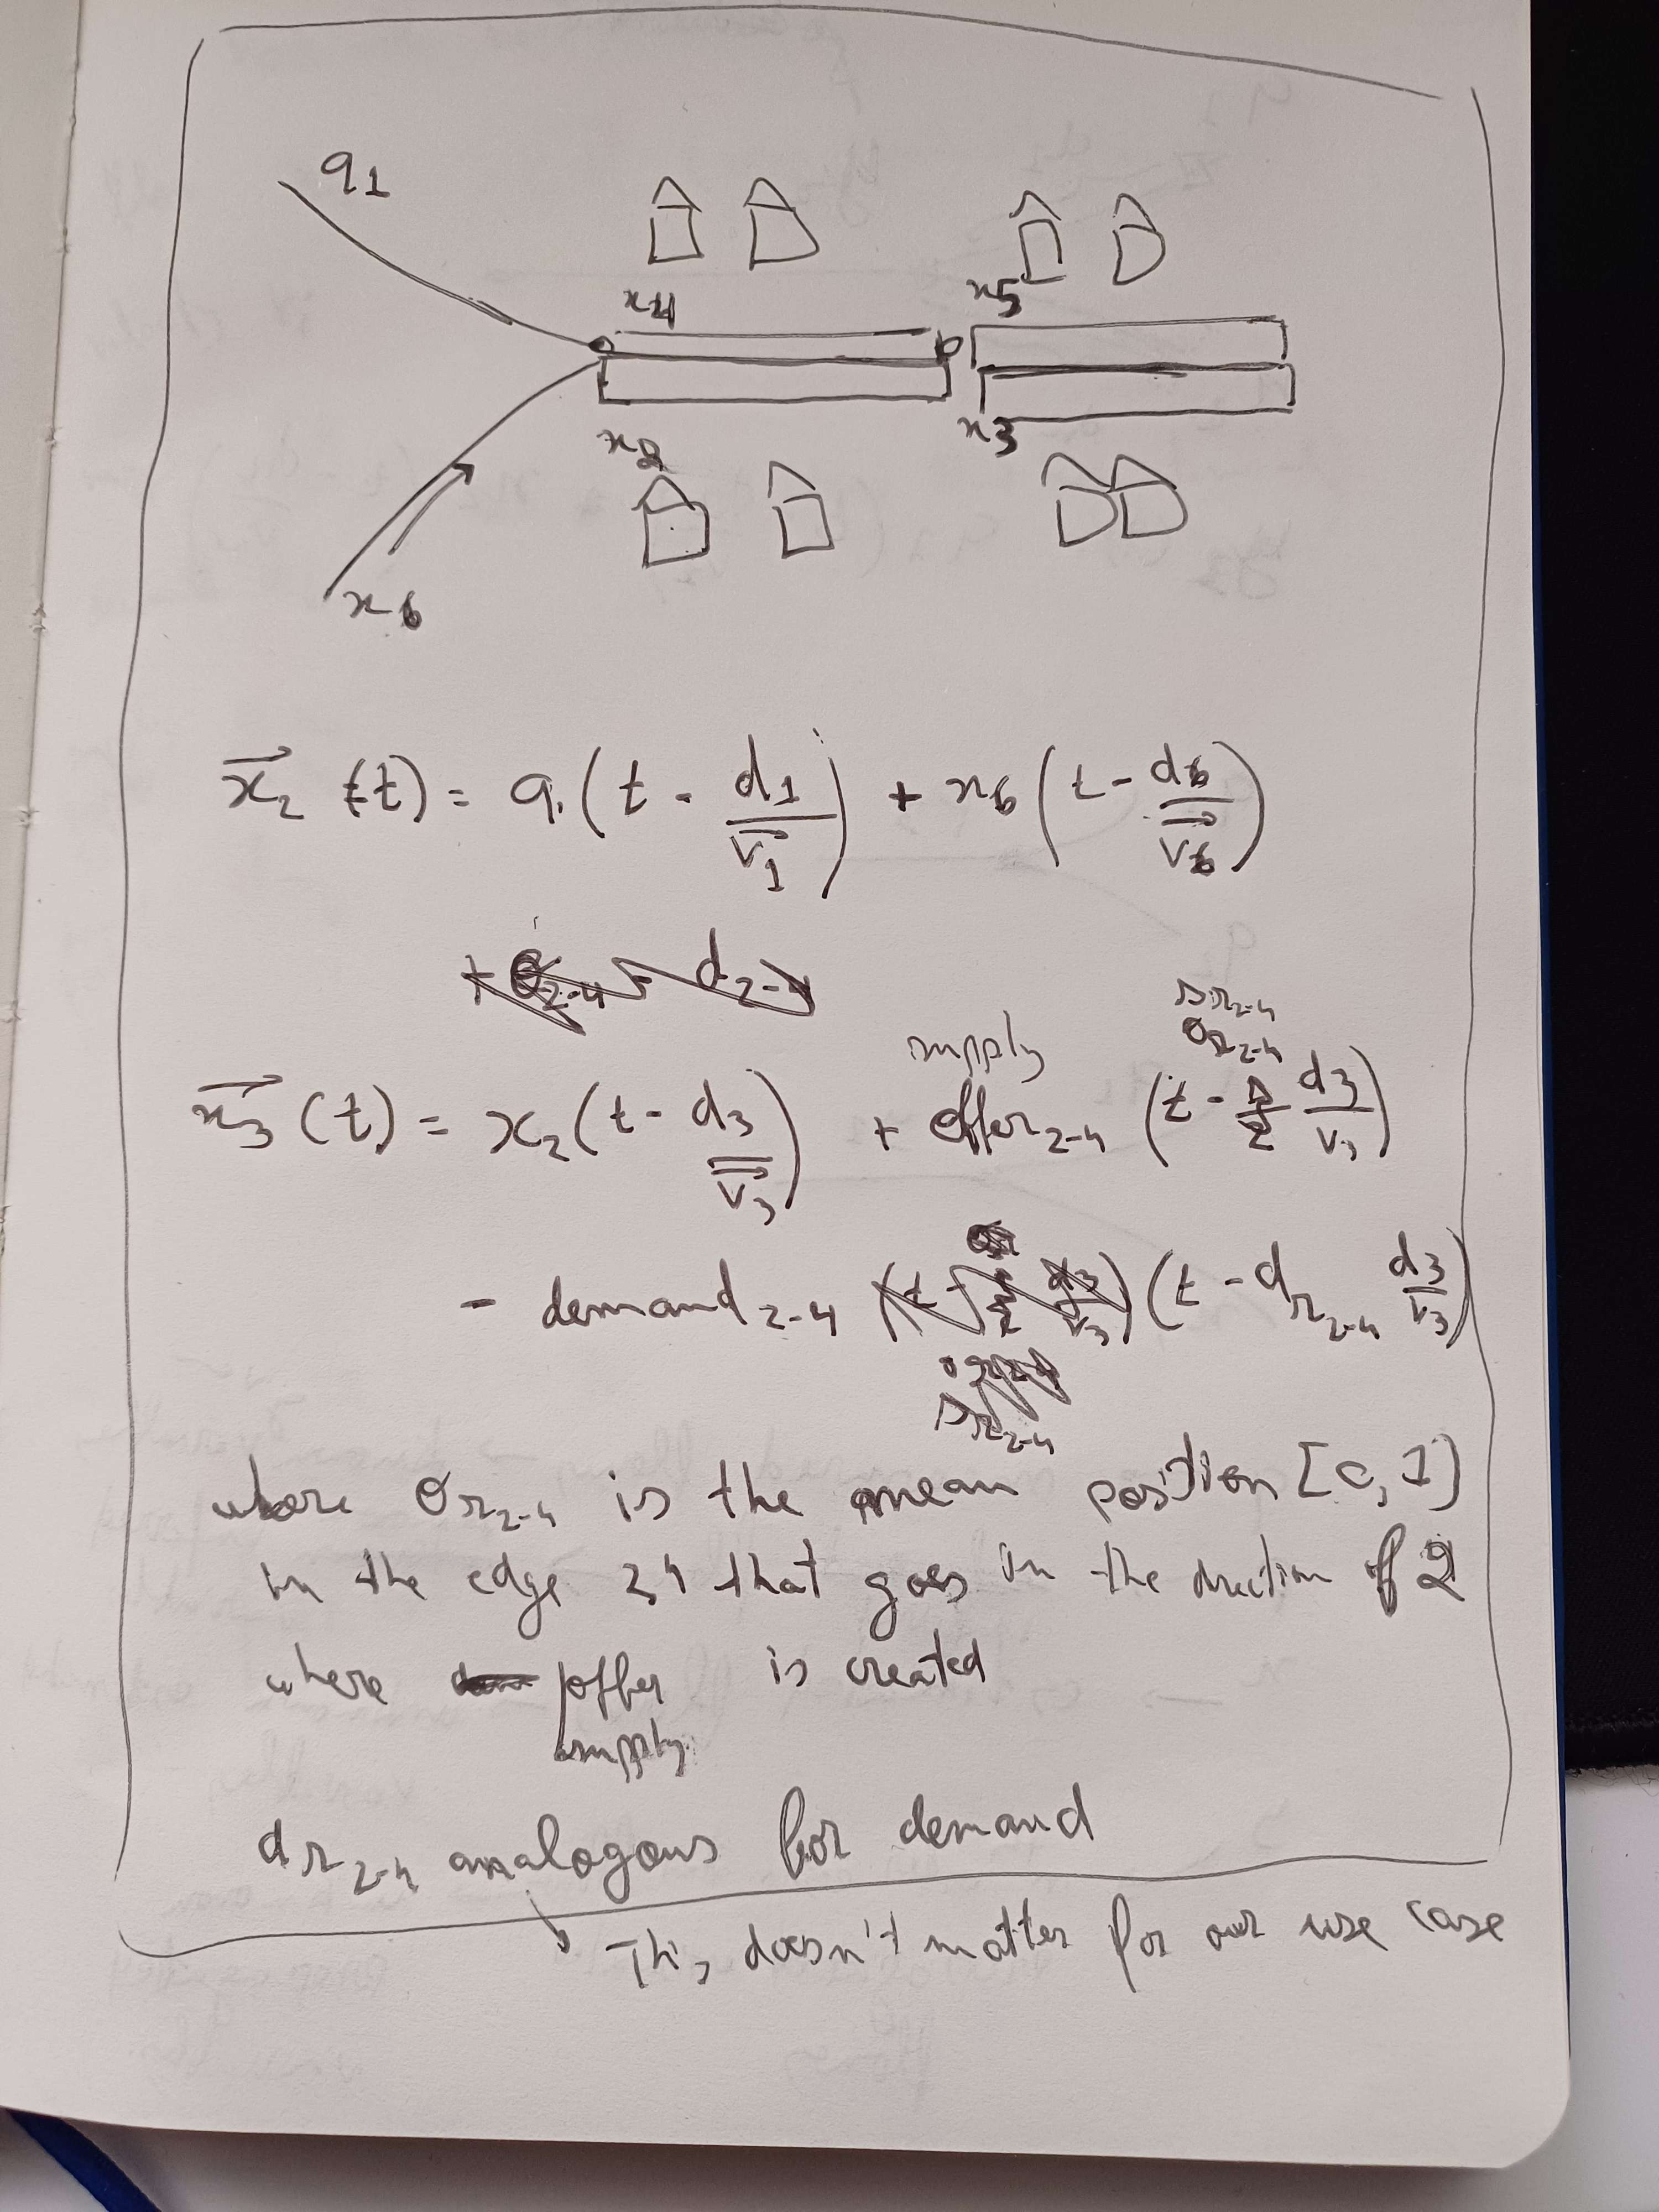 q1
x4
x5
x2
x3
x6
x₂ (t) = q₁(t - d1/v1) + x6(t - d6/v6)
+ O2-4 - d2-4
supply
sr2-4
or2-4
x3 (t) = x2(t - d3/v3) + offer2-4 (t - 1/2 d3/v3)
- demand2-4 (t - 1/2 d3/v3) (t - dr2-4 d3/v3)
sr2-4
where or2-4 is the mean position [0,1]
in the edge 24 that goes in the direction of 2
where offer is created
supply
dr2-4 analogous for demand
This doesn't matter for our use case